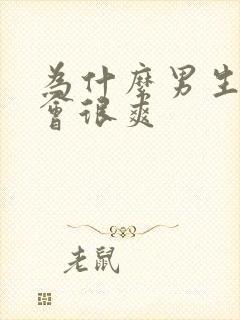 為什麼男生
會很爽
老鼠